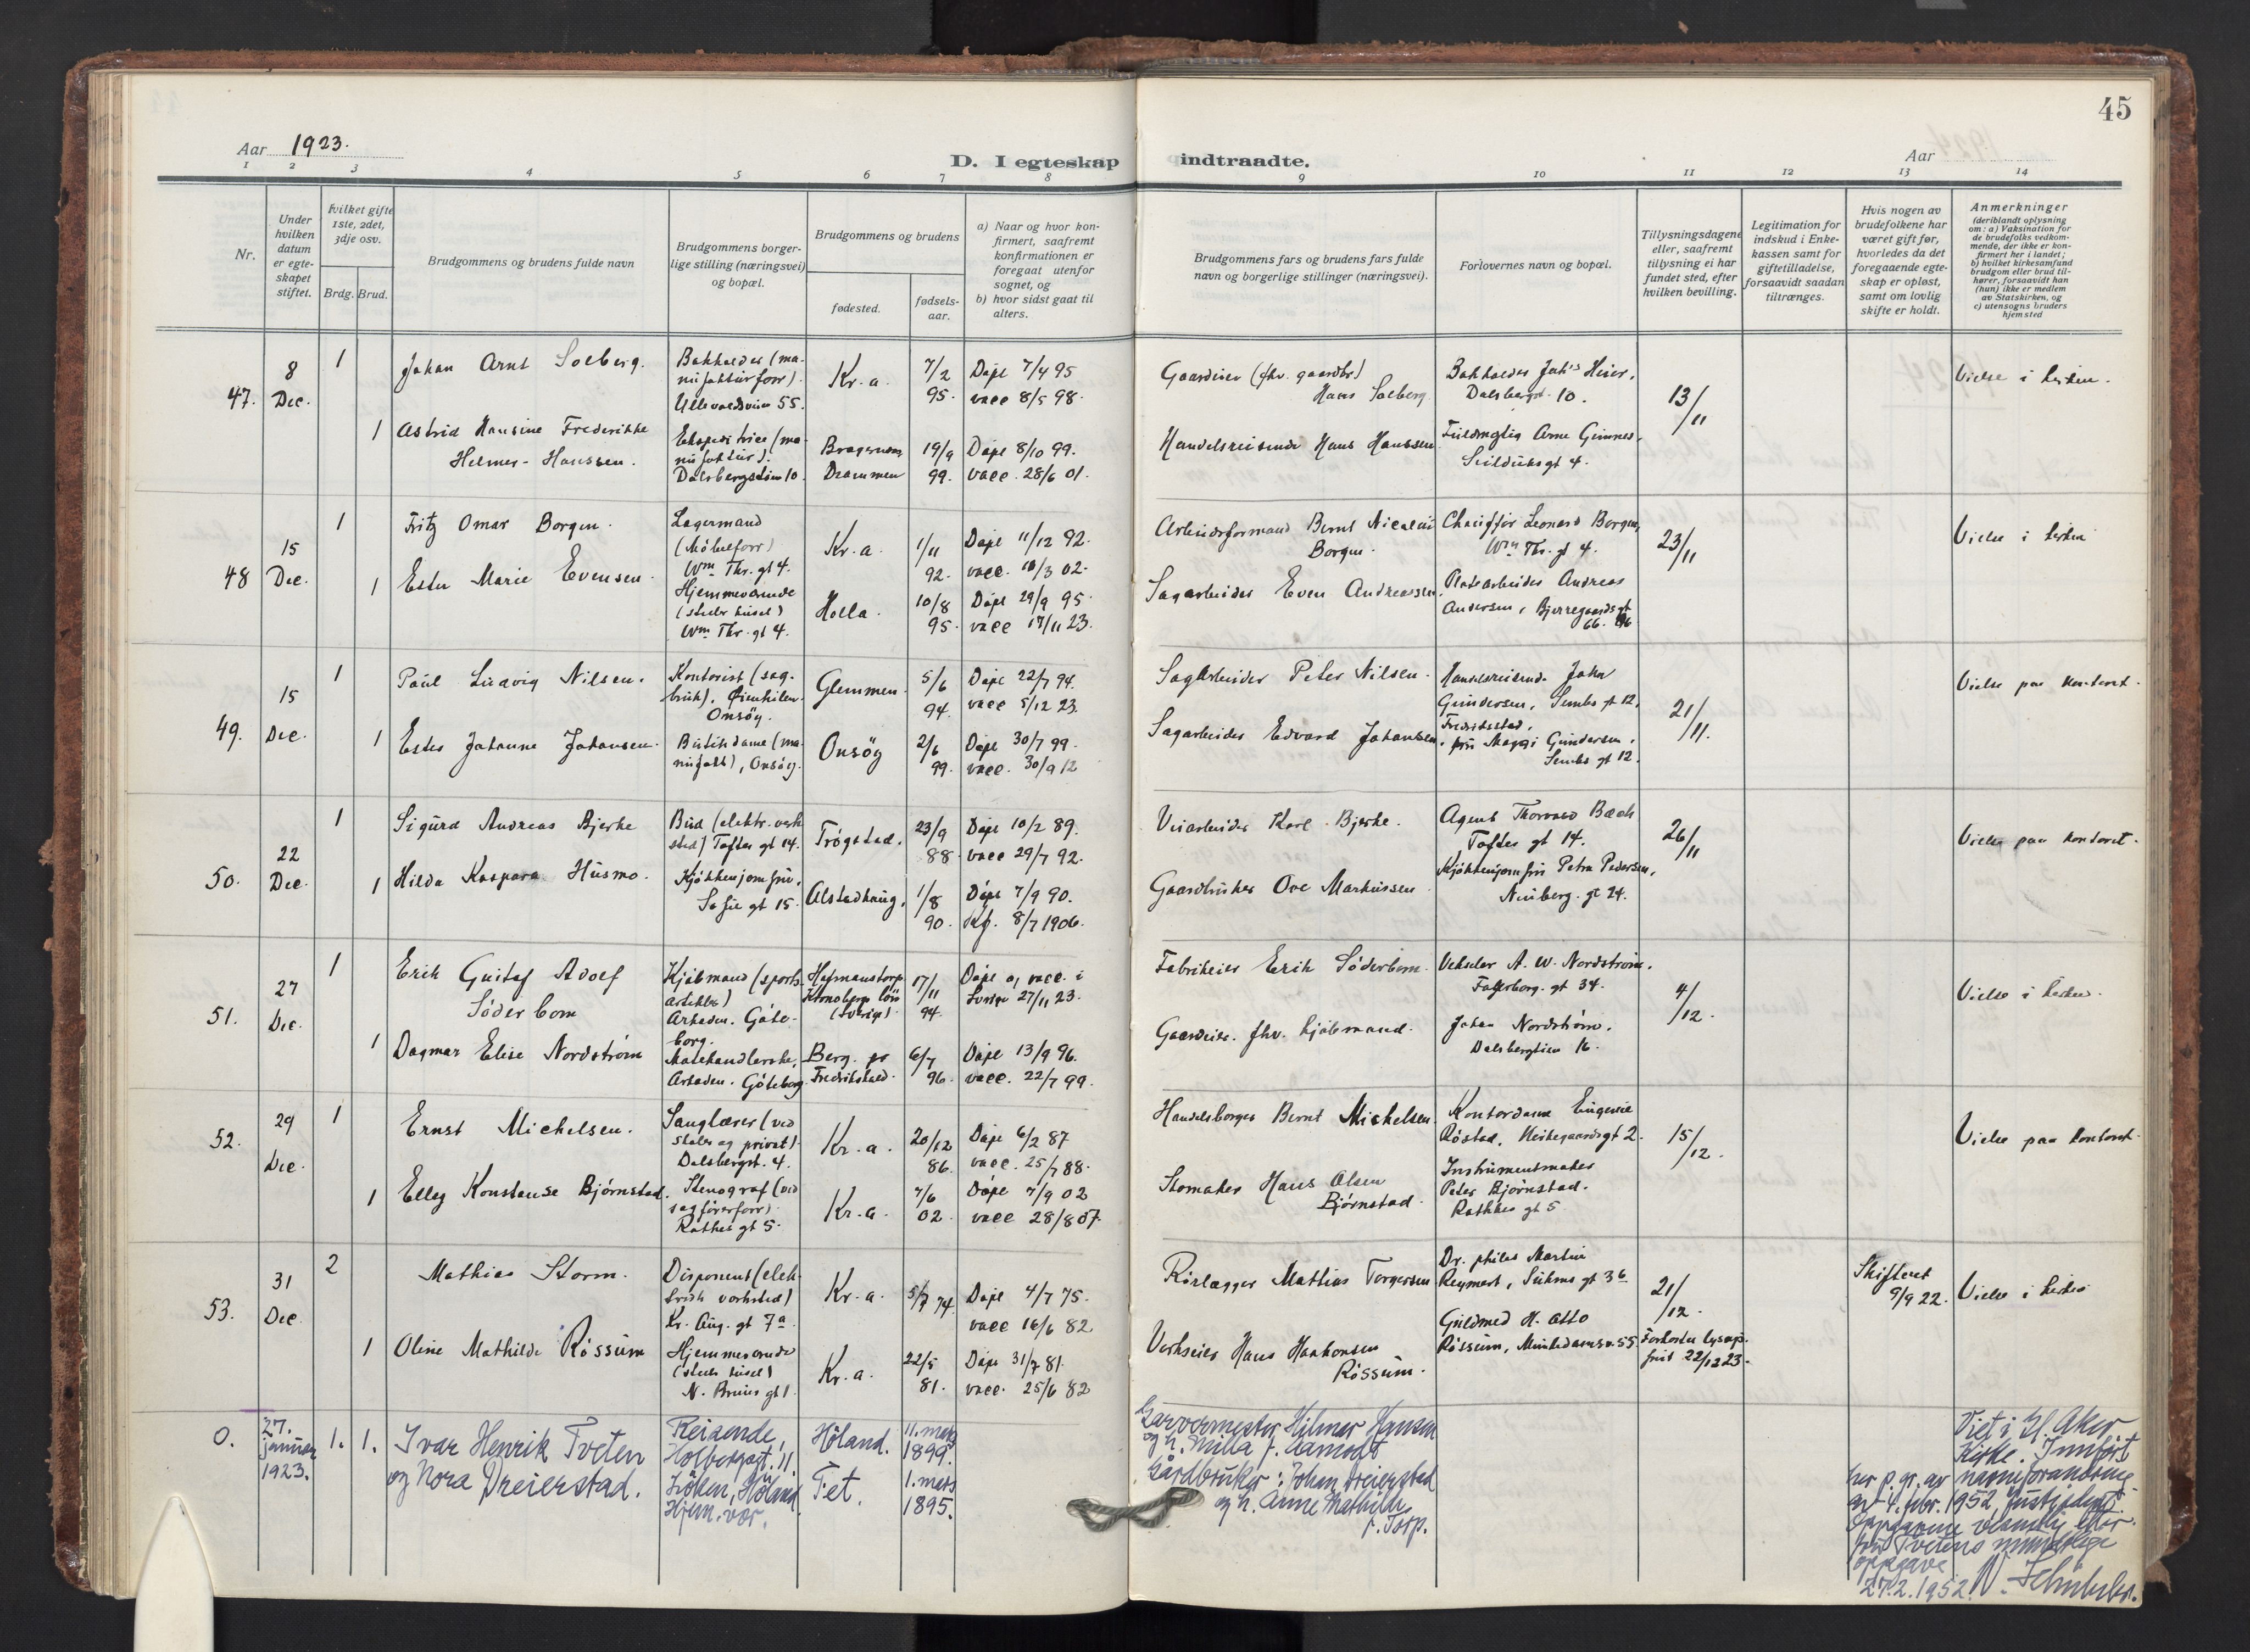 45
Aar 1923.
D. I egteskap indtraadte.
Aar
1 2 3 4 5 6 7 8 9 10 11 12 13 14
Nr.
Under
hvilken
datum
er egte-
skapet
stiftet.
hvilket gifte
1ste, 2det,
3dje osv.
Brdg. Brud.
Brudgommens og brudens fulde navn
Brudgommens borger-
lige stilling (næringsvei)
og bopæl.
Brudgommens og brudens
fødested.
fødsels-
aar.
a) Naar og hvor kon-
firmert, saafremt
konfirmationen er
foregaat utenfor
sognet, og
b) hvor sidst gaat til
alters.
Brudgommens fars og brudens fars fulde
navn og borgerlige stillinger (næringsvei).
Forlovernes navn og bopæl.
Tillysningsdagene
eller, saafremt
tillysning ei har
fundet sted, efter
hvilken bevilling.
Legitimation for
indskud i Enke-
kassen samt for
giftetilladelse,
forsaavidt saadan
tiltrænges.
Hvis nogen av
brudefolkene har
været gift før,
hvorledes da det
foregaaende egte-
skap er opløst,
samt om lovlig
skifte er holdt.
Anmerkninger
(deriblandt oplysning
om: a) Vaksination for
de brudefolks vedkom-
mende, der ikke er kon-
firmert her i landet;
b) hvilket kirkesamfund
brudgom eller brud til-
hører, forsaavidt han
(hun) ikke er medlem
av Statskirken, og
c) utensogns bruders
hjemsted
47.
8
Dec.
1
Johan Arnt Solberg.
Bokholder (ma-
nufakturforr).
Ullevoldsveien 55.
Kr.a.
7/2
95.
Døpt 7/4 95
vacc 8/5 98.
Gaardeier (fhv. gaardbr.)
Hans Solberg
Bokholder Joh's Heier.
Dalsbergst. 10.
13/11
Vielse i kirken.
1
Astrid Hansine Frederikke
Helmer-Hanssen.
Ekspeditrice (ma-
nufaktur).
Dalsbergstien 10.
Bragernes
Drammen
19/9
99.
Døpt 8/10 99.
vacc. 28/6 01.
Handelsreisende Hans Hanssen
Fuldmegtig Arne Gimnes.
Seilduksgt 4.
48
15
Dec.
1
Fritz Omar Borgen.
Lagermand
(Møbelforr)
Wm Thr. gt 4.
Kr.a.
1/11
92.
Døpt 11/12 92.
vacc. 10/3 02.
Arbeidsformand Bernt Nicolai
Borgen.
Chauffør Leonard Borgen,
Wm Thr. gt 4.
23/11
Vielse i kirken
1
Ester Marie Evensen.
Hjemmeværende
(steller huset)
Wm Thr. gt 4.
Holla.
10/8
95.
Døpt 29/9 95.
vacc 17/11 23.
Sagarbeider Even Andreassen.
Platearbeider Andreas
Andersen, Bjerregaardsgt
66.
49.
15
Dec.
1
Paul Ludvig Nilsen.
Kontorist (sag-
bruk).
Onsøy.
Glemmen.
5/6
94.
Døpt 22/7 94.
vacc 5/12 23.
Sagarbeider Peter Nilsen.
Handelsreisende John
Gundersen, Sembs gt 12,
Fredrikstad.
21/11.
Vielse paa kontoret.
1
Ester Johanne Johansen.
Butikdame (ma-
nufakt), Onsøy.
Onsøy
2/6
99.
Døpt 30/7 99.
vacc. 30/9 12
Sagarbeider Edvard Johansen.
fru Maggi Gundersen.
Sembs gt 12.
50.
22
Dec.
1
Sigurd Andreas Bjerke
Bud (elektr. verk
sted) Toftes gt 14.
Trøgstad.
23/9
88.
Døpt 10/2 89.
vacc 29/7 92.
Veiarbeider Karl Bjerke.
Agent Thorvald Bæck
Toftes gt 14.
26/11
Vielse paa kontoret.
1
Hilda Kaspara Husmo.
Kjøkkenjomfru.
Sofie gt 15.
Alstadhaug.
1/8
90.
Døpt 7/9 90.
Kf. 8/7 1906.
Gaardbruker Ove Markussen
Kjøkkenjomfru Petra Pedersen,
Neuberg. gt 24.
51.
27
Dec.
1
Erik Gustaf Adolf
Söderbom
Kjøbmand (sports-
artikler)
Arkaden. Gøte-
borg.
Hofmanstorp
Kronobergs län
(Sverige)
17/11
94.
Døpt og vacc. i
Sverige 27/11 23.
Fabrikeier Erik Söderbom.
Vekseler A. W. Nordstrøm.
Fagerborg. gt 34.
4/12.
Vielse i kirken.
1
Dagmar Elise Nordstrøm
Arkaden. Göteborg.
Berg. pr
Fredrikshald.
6/7
96.
Døpt 13/9 96.
vacc. 22/7 99.
Gaardeier. fhv. kjøbmand.
Johan Nordstrøm.
Dalsbergstien 16.
52.
29
Dec.
1
Ernst Michelsen.
Sanglærer (ved
skoler og privat).
Dalsbergst. 4.
Kr.a.
20/12
86.
Døpt 6/2 87
vacc. 25/7 88.
Handelsborger Bernt Michelsen.
Kontordame Eugenie
Røstad, Kirkegaardsgt 2.
15/12.
Vielse paa kontoret.
1
Elley Konstanse Bjørnstad.
Stenograf (ved
sagførerforr)
Rathkes gt 5.
Kr.a.
7/6
02.
Døpt 7/9 02
vacc 28/8 07.
Skomaker Hans Olsen
Bjørnstad.
Instrumentmaker
Peter Bjørnstad.
Rathkes gt 5
53.
31
Dec
2
Mathias Storm.
Disponent (elek-
trisk verksted)
Kr. Aug. gt 7a
Kr.a.
5/7 74.
Døpt 4/7 75.
vacc 16/6 82.
Rørlægger Mathias Torgersen
Dr. philos Martin
Reymert, Suhms gt 36
21/12.
Skifteret
9/9 22.
Vielse i kirken
1
Oline Mathilde Røssum
Hjemmeværende
(steller huset)
N. Bruns gt 1.
Kr.a.
22/5
81.
Døpt 31/7 81.
vacc. 25/6 82
Verkseier Hans Haakonsen
Røssum.
Guldsmed H. Otto
Røssum, Munkedamsv. 55.
Forkortet lysnings-
frist 22/12 23.
0.
27.
januar
1923.
1. 1.
Ivar Henrik Tveten
og Nora Dreierstad.
Reisende,
Holbergsgt. 11.
Løken, Høland
Hjem.vær.
Høland.
Fet.
11. mars
1899.
1. mars
1895.
Garvermester Hilmar Hansen
og h. Milla f. Aamodt
Gårdbruker: Johan Dreierstad
og h. Anne Mathilde
f. Torp.
Viet i V. Aker
Kirke. Innført
her p. gr. av navneforandring
av 4. febr. 1952, Justisdept.
Oppgavene vesentlig etter
fru Tvetens muntlige
oppgave
27.2.1952.